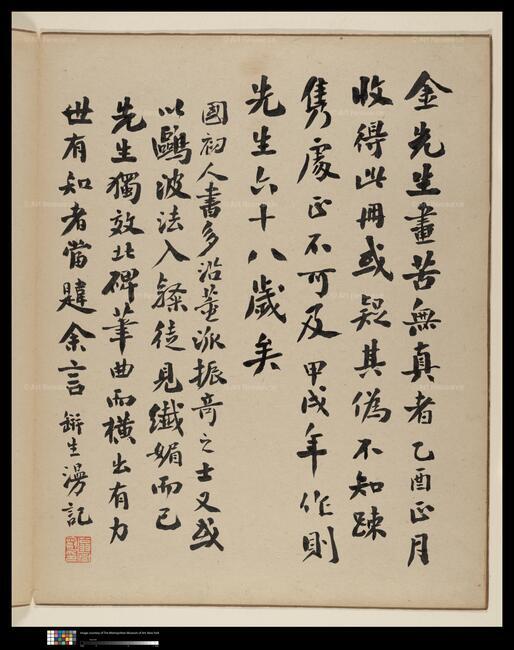 金先生畫苦無真者乙酉正月
收得此冊或疑其偽不知疎
雋處正不可及甲戌年作則
先生六十八歲矣
國初人書多沿董派振奇之士又或
以鷗波法入縣徒見纖媚而已
先生獨效北碑筆曲而橫出有力
世有知者當韙余言 瓣生漫記
Image courtesy of The Metropolitan Museum of Art, New York
© Art Resource